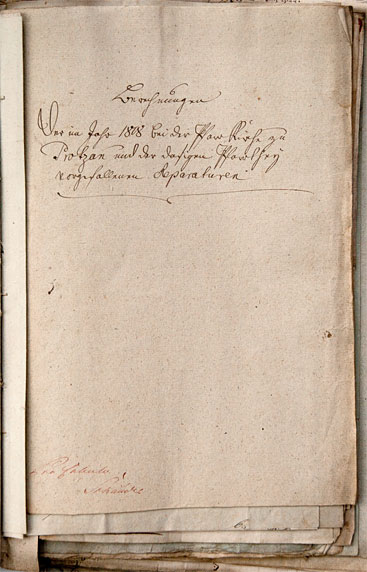 Berechnungen
Der im Jahr 1808 bei der Pfarr Kirche zu
Protzan und der dasigen Pfarthey
vorgefallenen Reparaturen